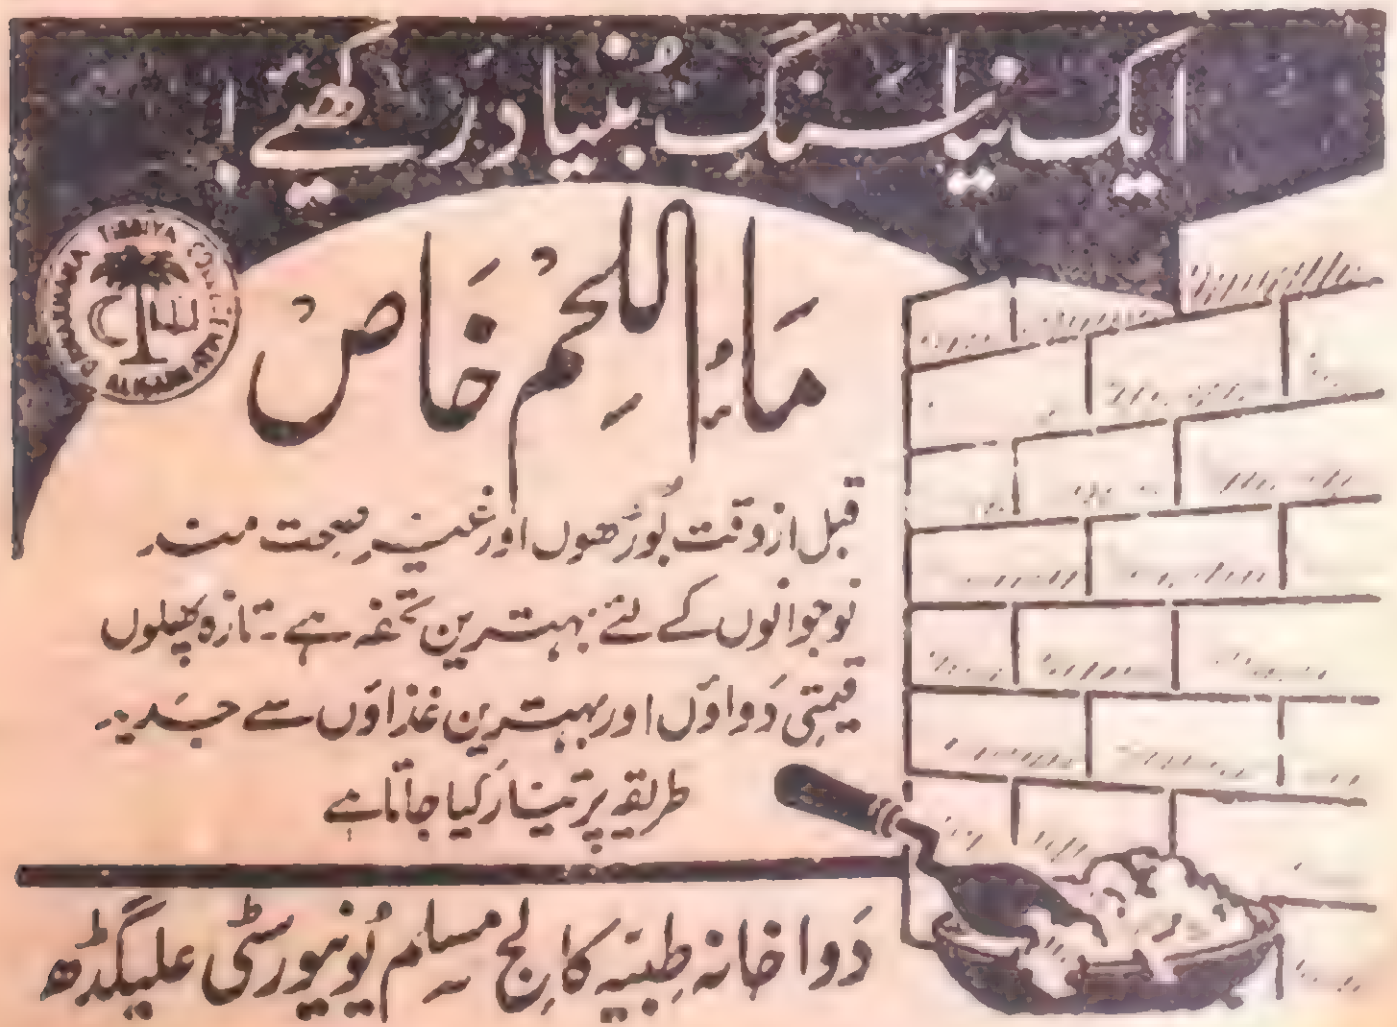 ایک نیا سنگِ بُنیاد رَکھئے!
DAWAKHANA TIBBIYA COLLEGE ALIGARH
مَاءُ اللحِمْ خَاصْ
قبل از وقت بُوڑھوں اور غیر صِحت مند
نوجوانوں کے لئے بہترین تحفہ ہے۔ تازہ پھلوں
قیمتی دَواؤں اور بہترین غذاؤں سے جَدید
طریقہ پر تیار کیا جاتا ہے
دَواخانہ طِبّیہ کالج مسلِم یُونیورسٹی علیگڈھ